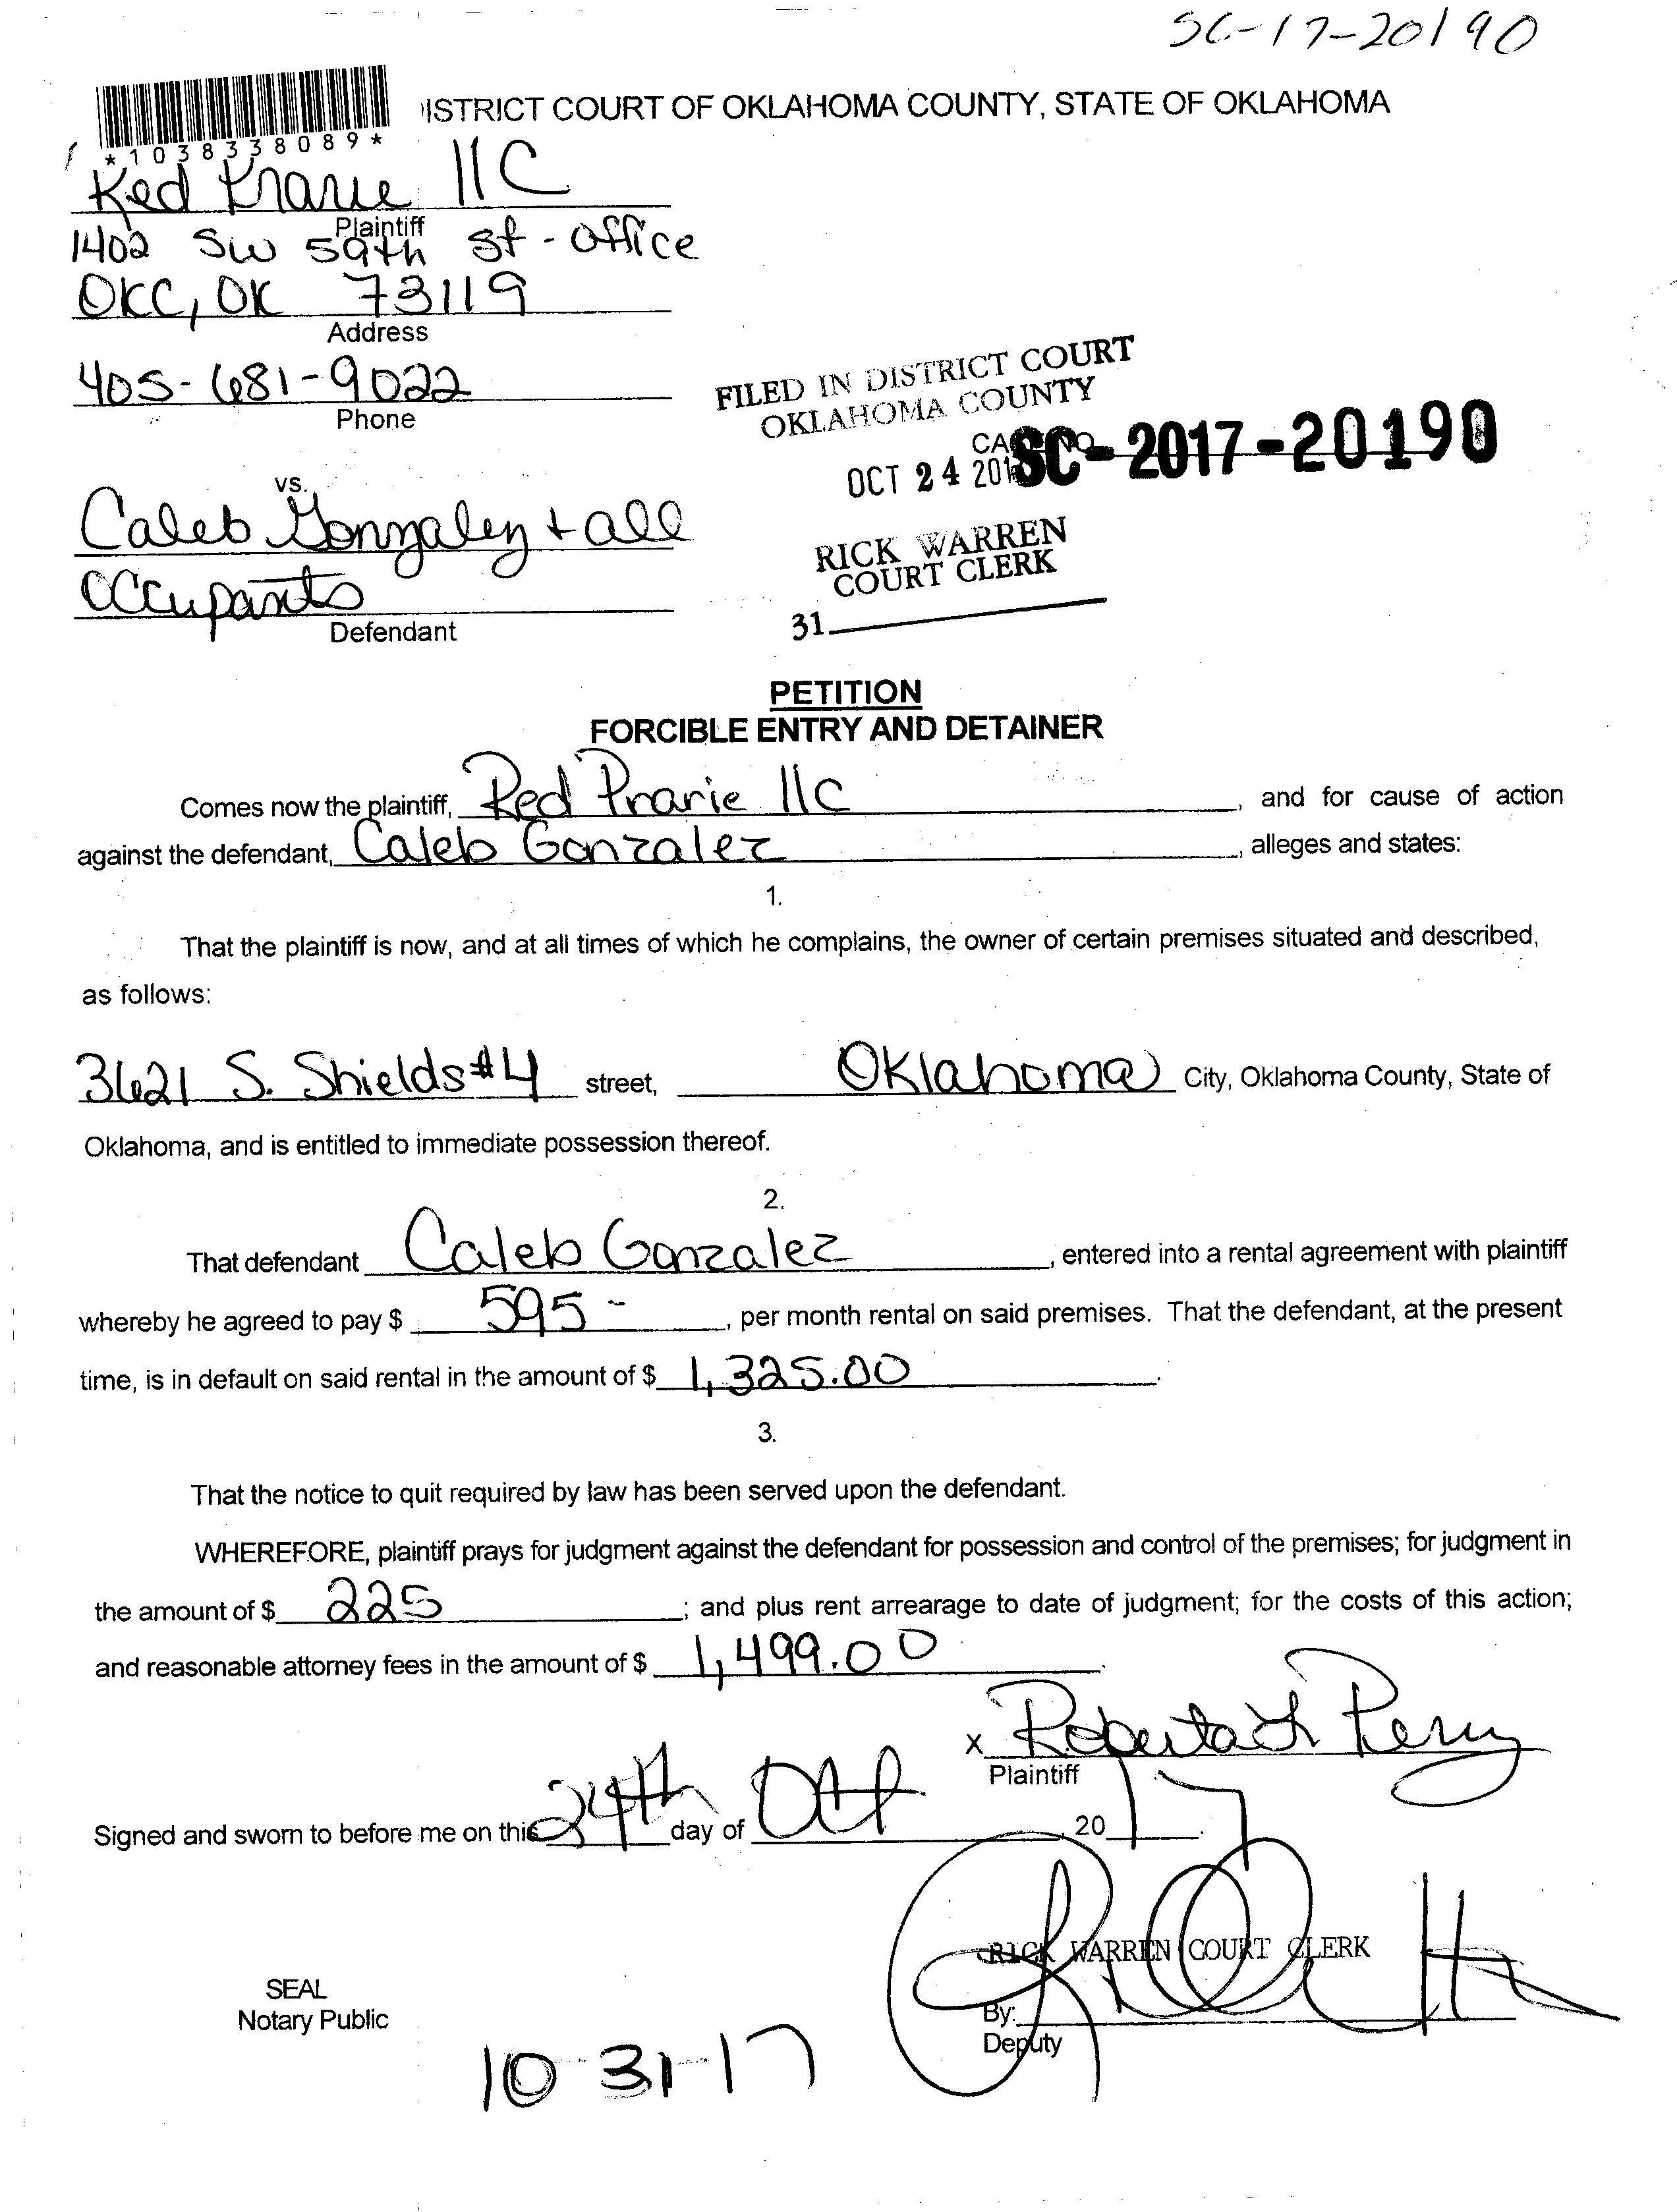 SC-17-20190
ISTRICT COURT OF OKLAHOMA COUNTY, STATE OF OKLAHOMA
*1038338089*
Red Prarie llC
Plaintiff
1402 SW 59th St - Office
OKC, OK 73119
Address
405-681-9022
Phone
FILED IN DISTRICT COURT
OKLAHOMA COUNTY
SC-2017-20190
OCT 24 201
RICK WARREN
COURT CLERK
31
vs.
Caleb Gonzalez + all
Occupants
Defendant
PETITION
FORCIBLE ENTRY AND DETAINER
Comes now the plaintiff, Red Prarie llC, and for cause of action
against the defendant, Caleb Gonzalez, alleges and states:
1.
That the plaintiff is now, and at all times of which he complains, the owner of certain premises situated and described,
as follows:
3621 S. Shields #4 street, Oklahoma City, Oklahoma County, State of
Oklahoma, and is entitled to immediate possession thereof.
2.
That defendant Caleb Gonzalez, entered into a rental agreement with plaintiff
whereby he agreed to pay $ 595-, per month rental on said premises. That the defendant, at the present
time, is in default on said rental in the amount of $ 1,325.00.
3.
That the notice to quit required by law has been served upon the defendant.
WHEREFORE, plaintiff prays for judgment against the defendant for possession and control of the premises; for judgment in
the amount of $ 225; and plus rent arrearage to date of judgment; for the costs of this action;
and reasonable attorney fees in the amount of $ 1,499.00.
x Roberta L Perry
Plaintiff
Signed and sworn to before me on this 24th day of Oct, 2017.
RICK WARREN COURT CLERK
SEAL
Notary Public
By:
Deputy
10-31-17